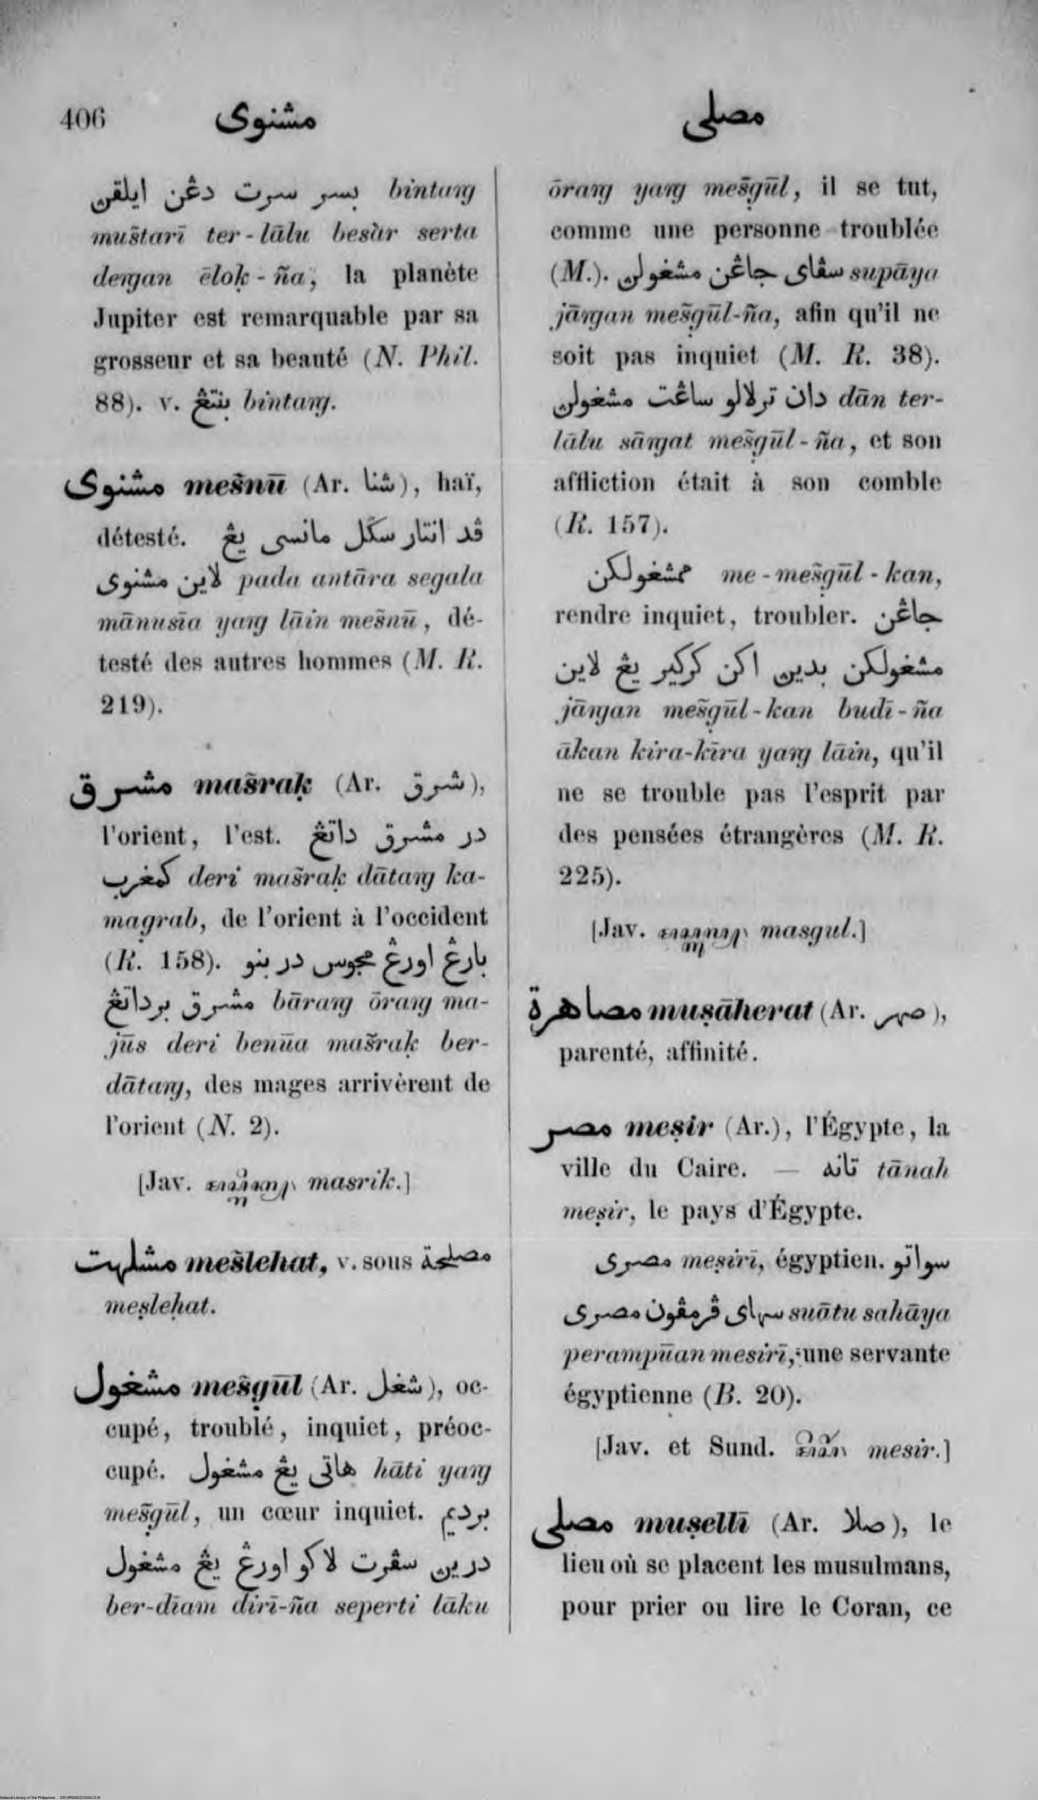 406 مشنوى مصلى
بسر سرت دڠن ايلقن bintaṅg
mus̃tarī ter-lālu besàr serta
deṅgan ēloḳ-ña, la planète
Jupiter est remarquable par sa
grosseur et sa beauté (N. Phil.
88). v. بنتڠ bintaṅg.
مشنوى mes̃nū (Ar. شنا), haï,
détesté. ڤد انتار سݢل مانسى يڠ
لاين مشنوى pada antāra segala
mānusīa yaṅg lāin mes̃nū, dé-
testé des autres hommes (M. R.
219).
مشرق mas̃raḳ (Ar. شرق),
l'orient, l'est. در مشرق داتڠ
كمغرب deri mas̃raḳ dātaṅg ka-
magrab, de l'orient à l'occident
(R. 158). بارڠ اورڠ مجوس در بنو
مشرق برداتڠ bāraṅg ōraṅg ma-
jūs deri benūa mas̃raḳ ber-
dātaṅg, des mages arrivèrent de
l'orient (N. 2).
[Jav. masrik.]
مشلهت mes̃lehat, v. sous مصلحة
meṣleḥat.
مشغول mes̃g̣ūl (Ar. شغل), oc-
cupé, troublé, inquiet, préoc-
cupé. هاتى يڠ مشغول hāti yaṅg
mes̃g̣ūl, un cœur inquiet. برديم
درين سڤرت لاكو اورڠ يڠ مشغول
ber-dīam dirī-ña seperti lāku
ōraṅg yaṅg mes̃g̣ūl, il se tut,
comme une personne troublée
(M.). سڤاى جاڠن مشغولن supāya
jāṅgan mes̃g̣ūl-ña, afin qu'il ne
soit pas inquiet (M. R. 38).
دان ترلالو ساڠت مشغولن dān ter-
lālu sāṅgat mes̃g̣ūl-ña, et son
affliction était à son comble
(R. 157).
ممشغولكن me-mes̃g̣ūl-kan,
rendre inquiet, troubler. جاڠن
مشغولكن بدين اكن كركير يڠ لاين
jāṅgan mes̃g̣ūl-kan budī-ña
ākan kira-kīra yaṅg lāin, qu'il
ne se trouble pas l'esprit par
des pensées étrangères (M. R.
225).
[Jav. masgul.]
مصاهرة muṣāherat (Ar. صهر),
parenté, affinité.
مصر meṣir (Ar.), l'Égypte, la
ville du Caire. — تانه tānah
meṣir, le pays d'Égypte.
مصرى meṣirī, égyptien. سواتو
سهاى ڤرمڤون مصرى suātu sahāya
perampūan mesirī, une servante
égyptienne (B. 20).
[Jav. et Sund. mesir.]
مصلى muṣellī (Ar. صلا), le
lieu où se placent les musulmans,
pour prier ou lire le Coran, ce